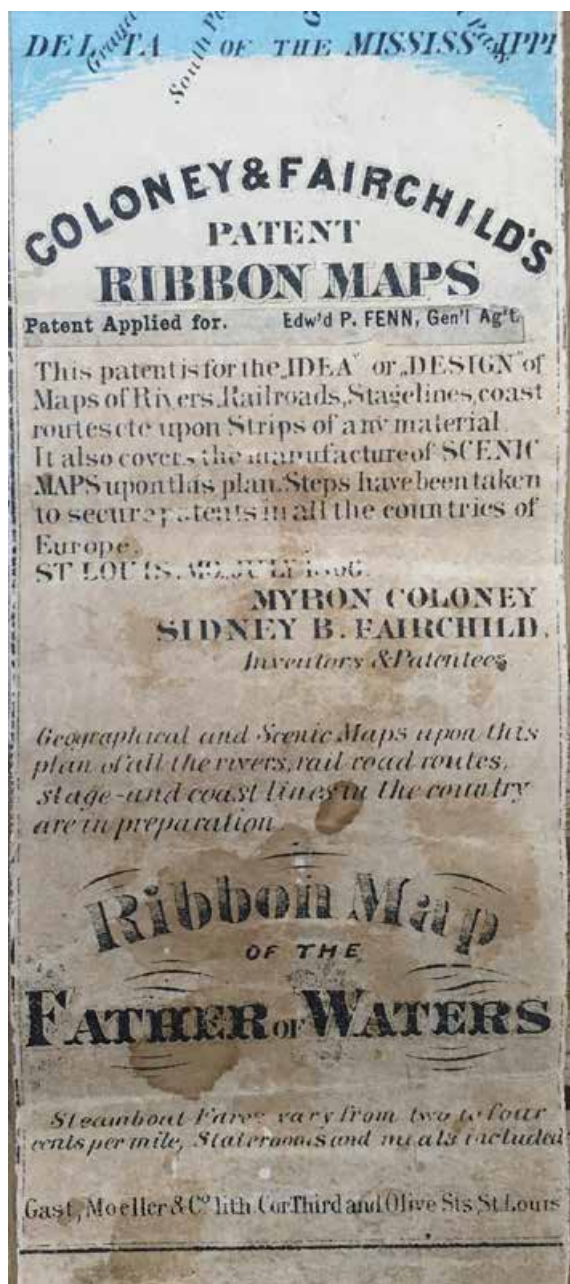 DELTA OF THE MISSISSIPPI
South Pa
Pass
COLONEY & FAIRCHILD'S
PATENT
RIBBON MAPS
Patent Applied for. Edw'd P. FENN, Gen'l Ag't.
This patent is for the „IDEA” or „DESIGN” of
Maps of Rivers, Railroads, Stagelines, coast
routes etc upon Strips of any material.
It also covers the manufacture of SCENIC
MAPS upon this plan. Steps have been taken
to secure patents in all the countries of
Europe.
ST LOUIS, MO. JULY 1866.
MYRON COLONEY
SIDNEY B. FAIRCHILD,
Inventors & Patentees
Geographical and Scenic Maps upon this
plan of all the rivers, rail road routes,
stage-and coast lines in the country
are in preparation.
Ribbon Map
OF THE
FATHER OF WATERS
Steamboat Fares vary from two to four
cents per mile, Staterooms and meals included
Gast, Moeller & Co lith. Cor Third and Olive Sts, St. Louis